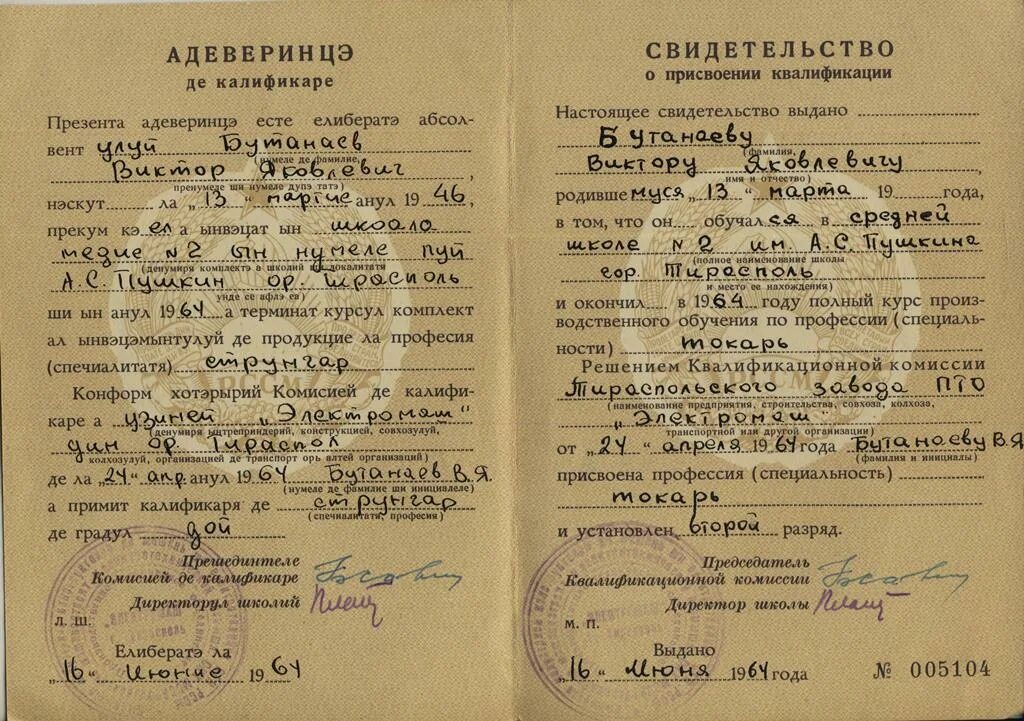 АДЕВЕРИНЦЭ
де калификаре
Презента адеверинцэ есте елибератэ абсол-
вент улуй Бутанаев
(нумеле де фамилие,
Виктор Яковлевич,
пренумеле ши нумеле дупэ татэ)
нэскут ла „13“ мартие анул 1946,
прекум кэ ел а ынвэцат ын шкоала
медие №2 ын нумеле луй
(денумиря комплектэ а школий ши локалитатя
А.С. Пушкин ор. Тирасполь
унде се афлэ еа)
ши ын анул 1964 а терминат курсул комплект
ал ынвэцэмынтулуй де продукцие ла професия
(спечиалитатя) струнгар
Конформ хотэрырий Комисией де калифи-
каре а узиней „Электромаш“
(денумиря ынтреприндерий, конструкцией, совхозулуй,
дин ор. Тираспол
колхозулуй, организацией де транспорт орь алтей организаций)
де ла „24“ апр. анул 1964 Бутанаев В.Я.
(нумеле де фамилие ши инициалеле)
а примит калификаря де струнгар
(спечиалитатя, професия)
де градул дой
Прешединтеле
Комисией де калификаре
Директорул школий
Л. Ш.
Елибератэ ла
„16“ Июние 1964
СВИДЕТЕЛЬСТВО
о присвоении квалификации
Настоящее свидетельство выдано
Бутанаеву
(фамилия,
Виктору Яковлевичу
имя и отчество)
родившемуся „13“ марта 19 года,
в том, что он обучался в средней
школе №2 им. А.С. Пушкина
(полное наименование школы
гор. Тирасполь
и место ее нахождения)
и окончил в 1964 году полный курс произ-
водственного обучения по профессии (специаль-
ности) токарь
Решением Квалификационной комиссии
Тираспольского завода ПТО
(наименование предприятия, строительства, совхоза, колхоза,
„Электромаш“
транспортной или другой организации)
от „24“ апреля 1964 года Бутанаеву В.Я
(фамилия и инициалы)
присвоена профессия (специальность)
токарь
и установлен второй разряд.
Председатель
Квалификационной комиссии
Директор школы
М. П.
Выдано
„16“ Июня 1964 года № 005104